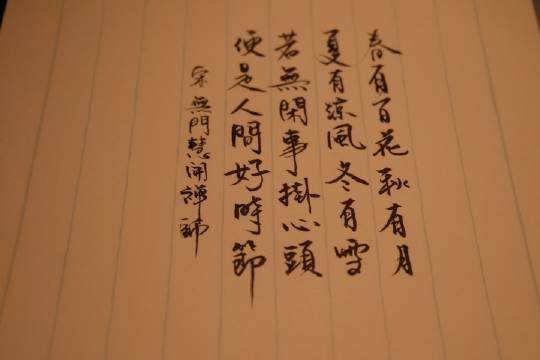 春有百花秋有月
夏有涼風冬有雪
若無閑事掛心頭
便是人間好時節
宋無門慧開禪師